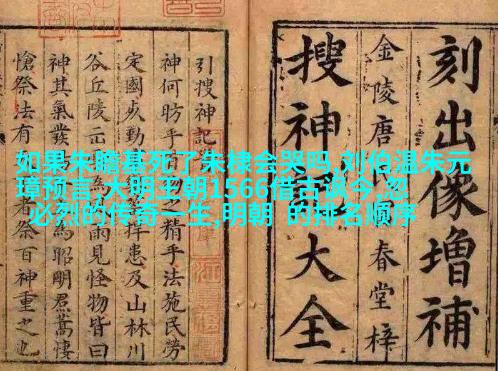 刻出像增補
搜神記大全
金陵唐 春堂梓
引搜神記
神何昉乎 之精乎法施民勞
定國 勤 捍患及山林川
谷丘陵 為 雨見怪物皆曰
神其氣發 為昭明焄蒿悽
愴祭法有 者祭百神重之也
如果朱瞻基死了朱棣会哭吗,刘伯温朱元
璋预言,大明王朝1566借古讽今,忽
必烈的传奇一生,明朝 的排名顺序